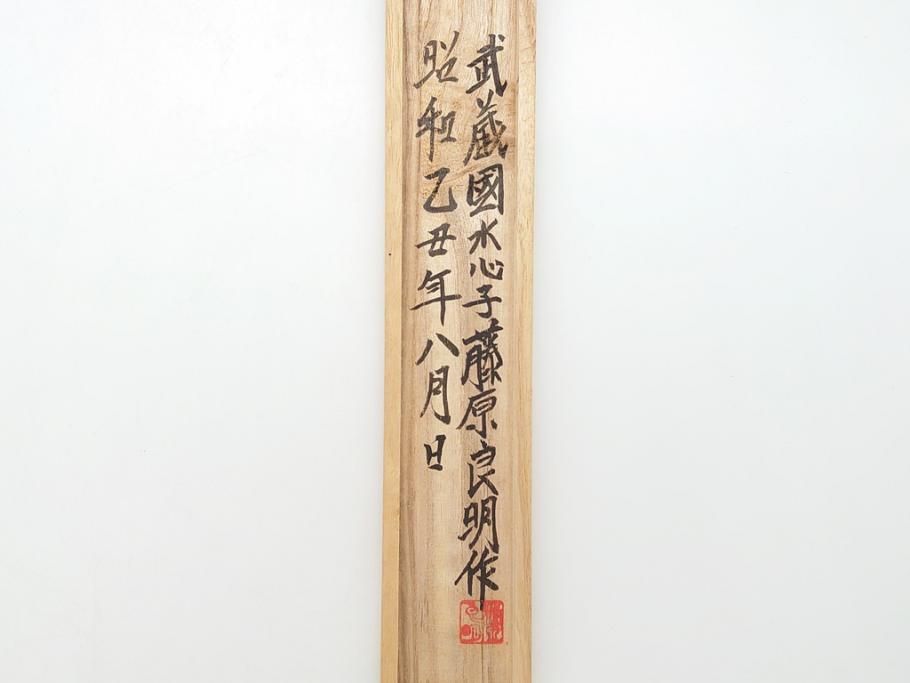 武蔵國水心子藤原良明作
昭和乙丑年八月日